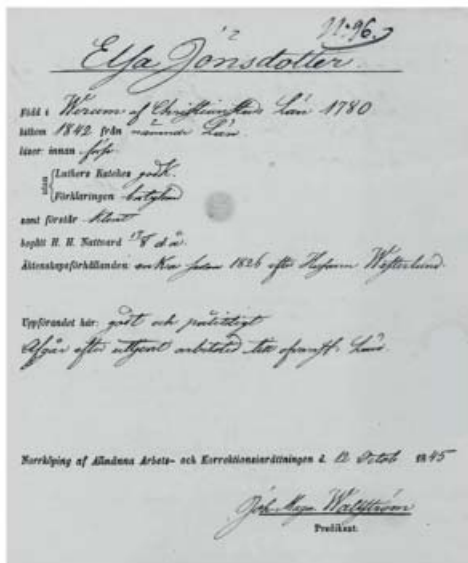 N:o 96.
Elsa Jönsdotter.
Född i Werum af Christianstads Län 1780
kommen 1842 från nämnde Län
läser: innan förs.
utan
Luthers Kateches godk.
Förklaringen
samt förstår klent
begått H. H. Nattvard 17/8 d. å.
Äktenskapsförhållanden: enka sedan 1826 efter Westerlund.
Uppförandet här: godt och
Afgår efter uttjent arbetstid till Län.
Norrköping af Allmänna Arbets- och Korrektionsinrättningen d. 12 Octob 1845
Joh. Magn. Wallström
Predikant.